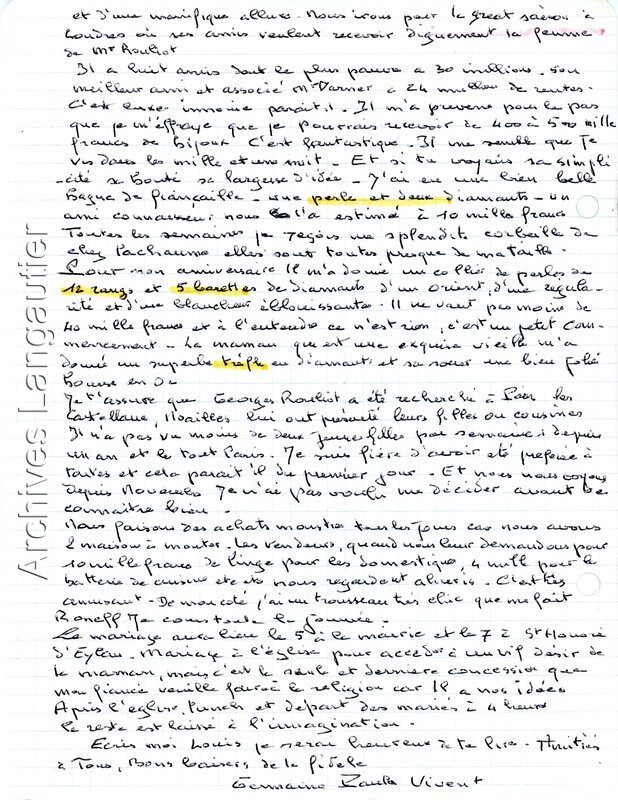 et d'une magnifique allure. Nous irons pour la great saison à
Londres où ses amis veulent recevoir dignement la femme
de Mr Rouliot
Il a huit amis dont le plus pauvre a 30 millions. Son
meilleur ami et associé Mr Varner a 24 million de rentes.
C'est luxe inouïe parait il. Il m'a prévenu pour le pas
que je m'effraye que je pourrais recevoir de 400 à 500 mille
francs de bijoux. C'est fantastique. Il me semble que je
vis dans les mille et une nuit. Et si tu voyais sa simpli
cité sa bonté sa largesse d'idée. J'ai eu une bien belle
Bague de fiançaille. une perle et deux diamants. un
ami connaisseur nous l'a estimé à 10 mille francs
Toutes les semaines je reçois une splendide corbeille de
chez Lachaume elles sont toutes presque de ma taille.
Pour mon anniversaire Il m'a donné un collier de perles de
12 rangs et 5 barettes de diamants d'un orient, d'une régula-
rité et d'une blancheur éblouissante. Il ne vaut pas moins de
40 mille francs et à l'entendre ce n'est rien, c'est un petit com-
mencement. La maman qui est une exquise vieille m'a
donné un superbe trèfle en diamants et sa sœur une bien jolie
bourse en Or
Je t'assure que Georges Rouliot a été recherché à Paris les
Castellane, Noailles lui ont présenté leurs filles ou cousines
Il n'a pas vu moins de deux jeunes filles par semaine depuis
un an et le tout Paris. Je suis fière d'avoir été préférée à
toutes et cela parait'il du premier jour. Et nous nous voyons
depuis Novembre Je n'ai pas voulu me décider avant de
connaitre bien.
Nous faisons des achats monstres tous les jours car nous avons
2 maison à monter. Les vendeurs, quand nous leur demandons pour
10 mille francs de linge pour les domestiques, 4 mille pour la
batterie de cuisine etc etc nous regardent ahuris. C'est très
amusant. De mon coté j'ai un trousseau très chic que me fait
Roneff Je cours toute la journée.
Le mariage aura lieu le 5 à la mairie et le 7 à St Honoré
d'Eylau. Mariage à l'église pour accéder à un vif désir de
la maman, mais c'est la seule et dernière concession que
mon fiancé veuille faire à la religion car Il a nos idées
Après l'église, lunch et départ des mariés à 4 heures
le reste est laissé à l'imagination.
Ecris moi Louis je serai heureuse de te lire. Amitiés
à Tous, Bons baisers de la fidèle
Germaine Paule Vivent
Archives Langautier